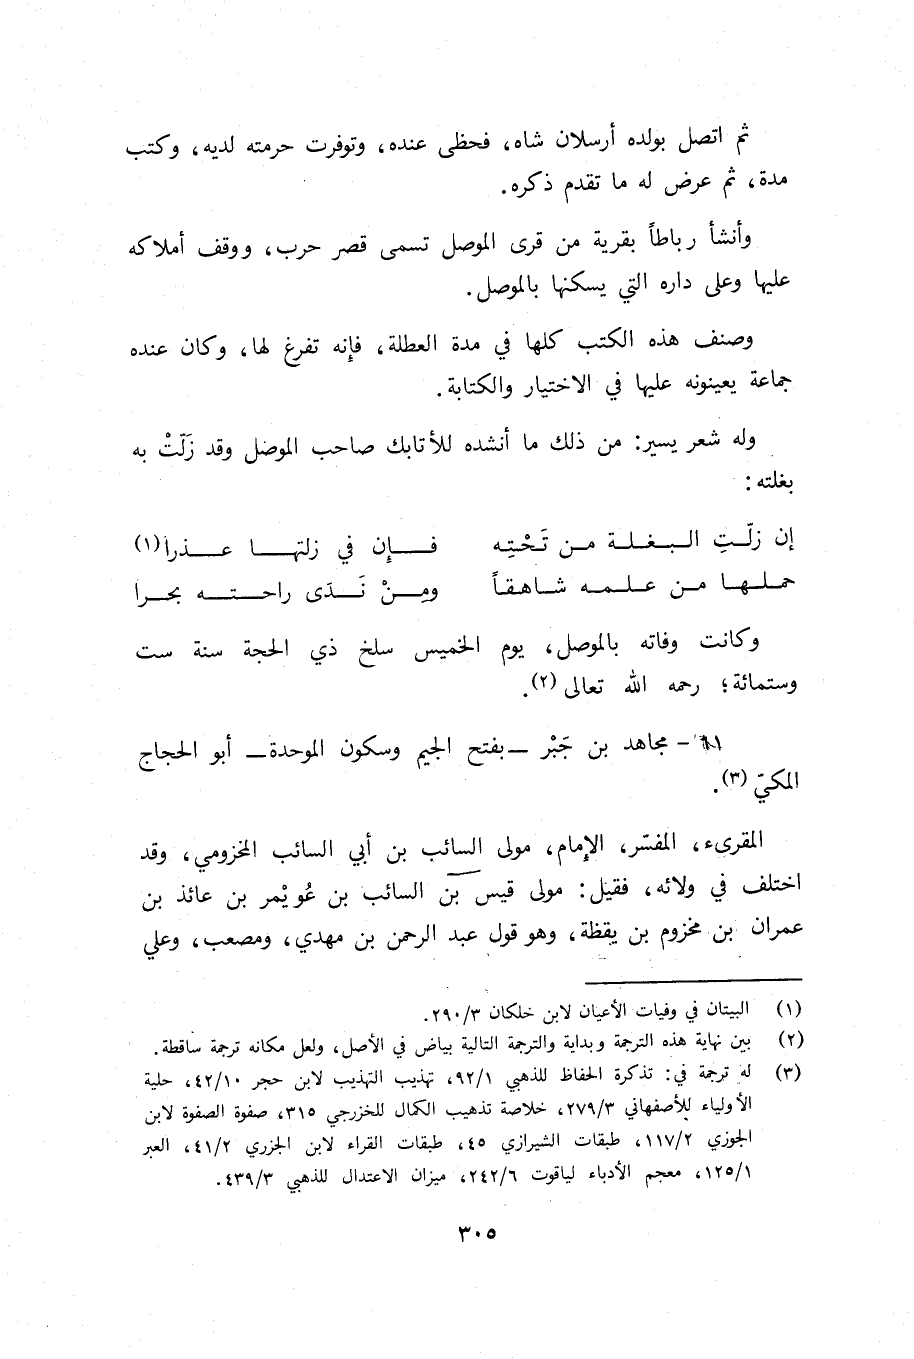 ثم اتصل بولده أرسلان شاه، فحظى عنده، وتوفرت حرمته لديه، وكتب
مدة، ثم عرض له ما تقدم ذكره.
وأنشأ رباطاً بقرية من قرى الموصل تسمى قصر حرب، ووقف أملاكه
عليها وعلى داره التي يسكنها بالموصل.
وصنف هذه الكتب كلها في مدة العطلة، فإنه تفرغ لها، وكان عنده
جماعة يعينونه عليها في الاختيار والكتابة.
وله شعر يسير: من ذلك ما أنشده للأتابك صاحب الموصل وقد زَلَّتْ به
بغلته:
إن زلّتِ البغلة من تَحْتِه فإن في زلتها عذرا(١)
حملها من علمه شاهقاً ومِنْ نَدَى راحته بحرا
وكانت وفاته بالموصل، يوم الخميس سلخ ذي الحجة سنة ست
وستمائة؛ رحمه الله تعالى(٢).
- مجاهد بن جَبْر ــ بفتح الجيم وسكون الموحدة ــ أبو الحجاج
المكيّ(٣).
المقرىء، المفسّر، الإمام، مولى السائب بن أبي السائب المخزومي، وقد
اختلف في ولائه، فقيل: مولى قيس بن السائب بن عُويْمر بن عائذ بن
عمران بن مخزوم بن يقظة، وهو قول عبد الرحمن بن مهدي، ومصعب، وعلي
(١) البيتان في وفيات الأعيان لابن خلكان ٢٩٠/٣.
(٢) بين نهاية هذه الترجمة وبداية والترجمة التالية بياض في الأصل، ولعل مكانه ترجمة ساقطة.
(٣) له ترجمة في: تذكرة الحفاظ للذهبي ٩٢/١، تهذيب التهذيب لابن حجر ٤٢/١٠، حلية
الأولياء للأصفهاني ٢٧٩/٣، خلاصة تذهيب الكمال للخزرجي ٣١٥، صفوة الصفوة لابن
الجوزي ١١٧/٢، طبقات الشيرازي ٤٥، طبقات القراء لابن الجزري ٤١/٢، العبر
١٢٥/١، معجم الأدباء لياقوت ٢٤٢/٦، ميزان الاعتدال للذهبي ٤٣٩/٣.
٣٠٥